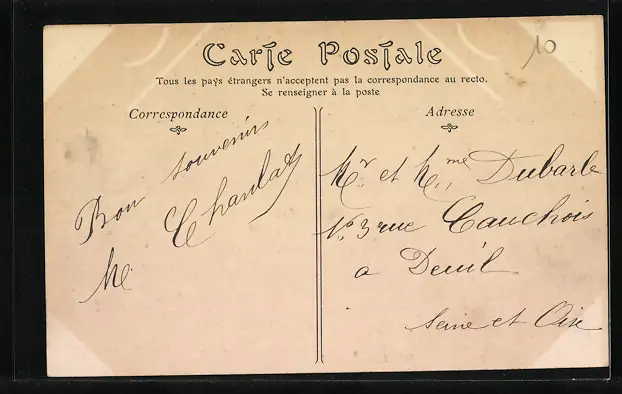 10
Carte Postale
Tous les pays étrangers n'acceptent pas la correspondance au recto.
Se renseigner à la poste
Correspondance
Bon souvenirs
Adresse
Mr. et Mme Dubarle
No 3 rue Cauchois
a Deuil
Seine et Oise